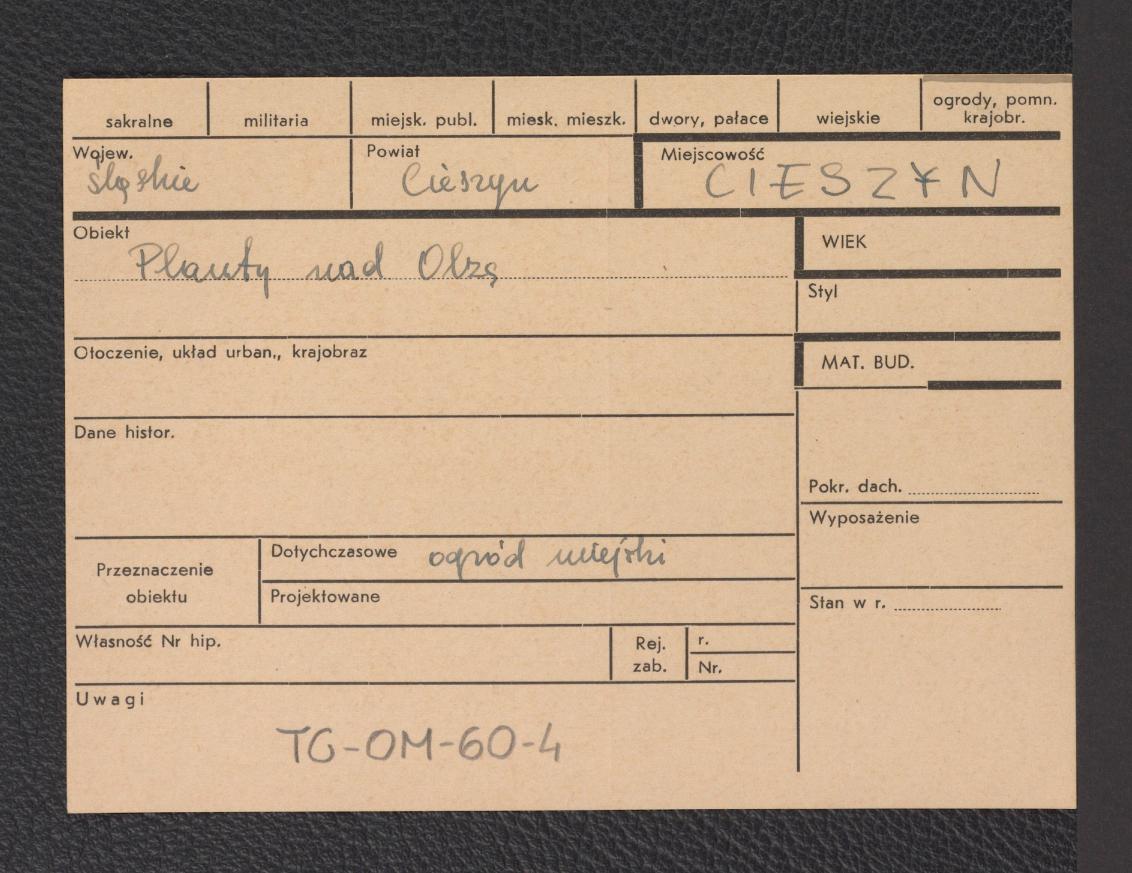 sakralne militaria miejsk. publ. miesk. mieszk. dwory, pałace wiejskie ogrody, pomn. krajobr.
Wojew. Powiat Miejscowość
śląskie Cieszyn CIESZYN
Obiekt WIEK
Planty nad Olzą
Styl
Otoczenie, układ urban., krajobraz
MAT. BUD.
Dane histor.
Pokr. dach.
Wyposażenie
Przeznaczenie obiektu
Dotychczasowe ogród miejski
Projektowane
Stan w r.
Własność Nr hip. Rej. zab. r.
Nr.
Uwagi
TG-OM-60-4